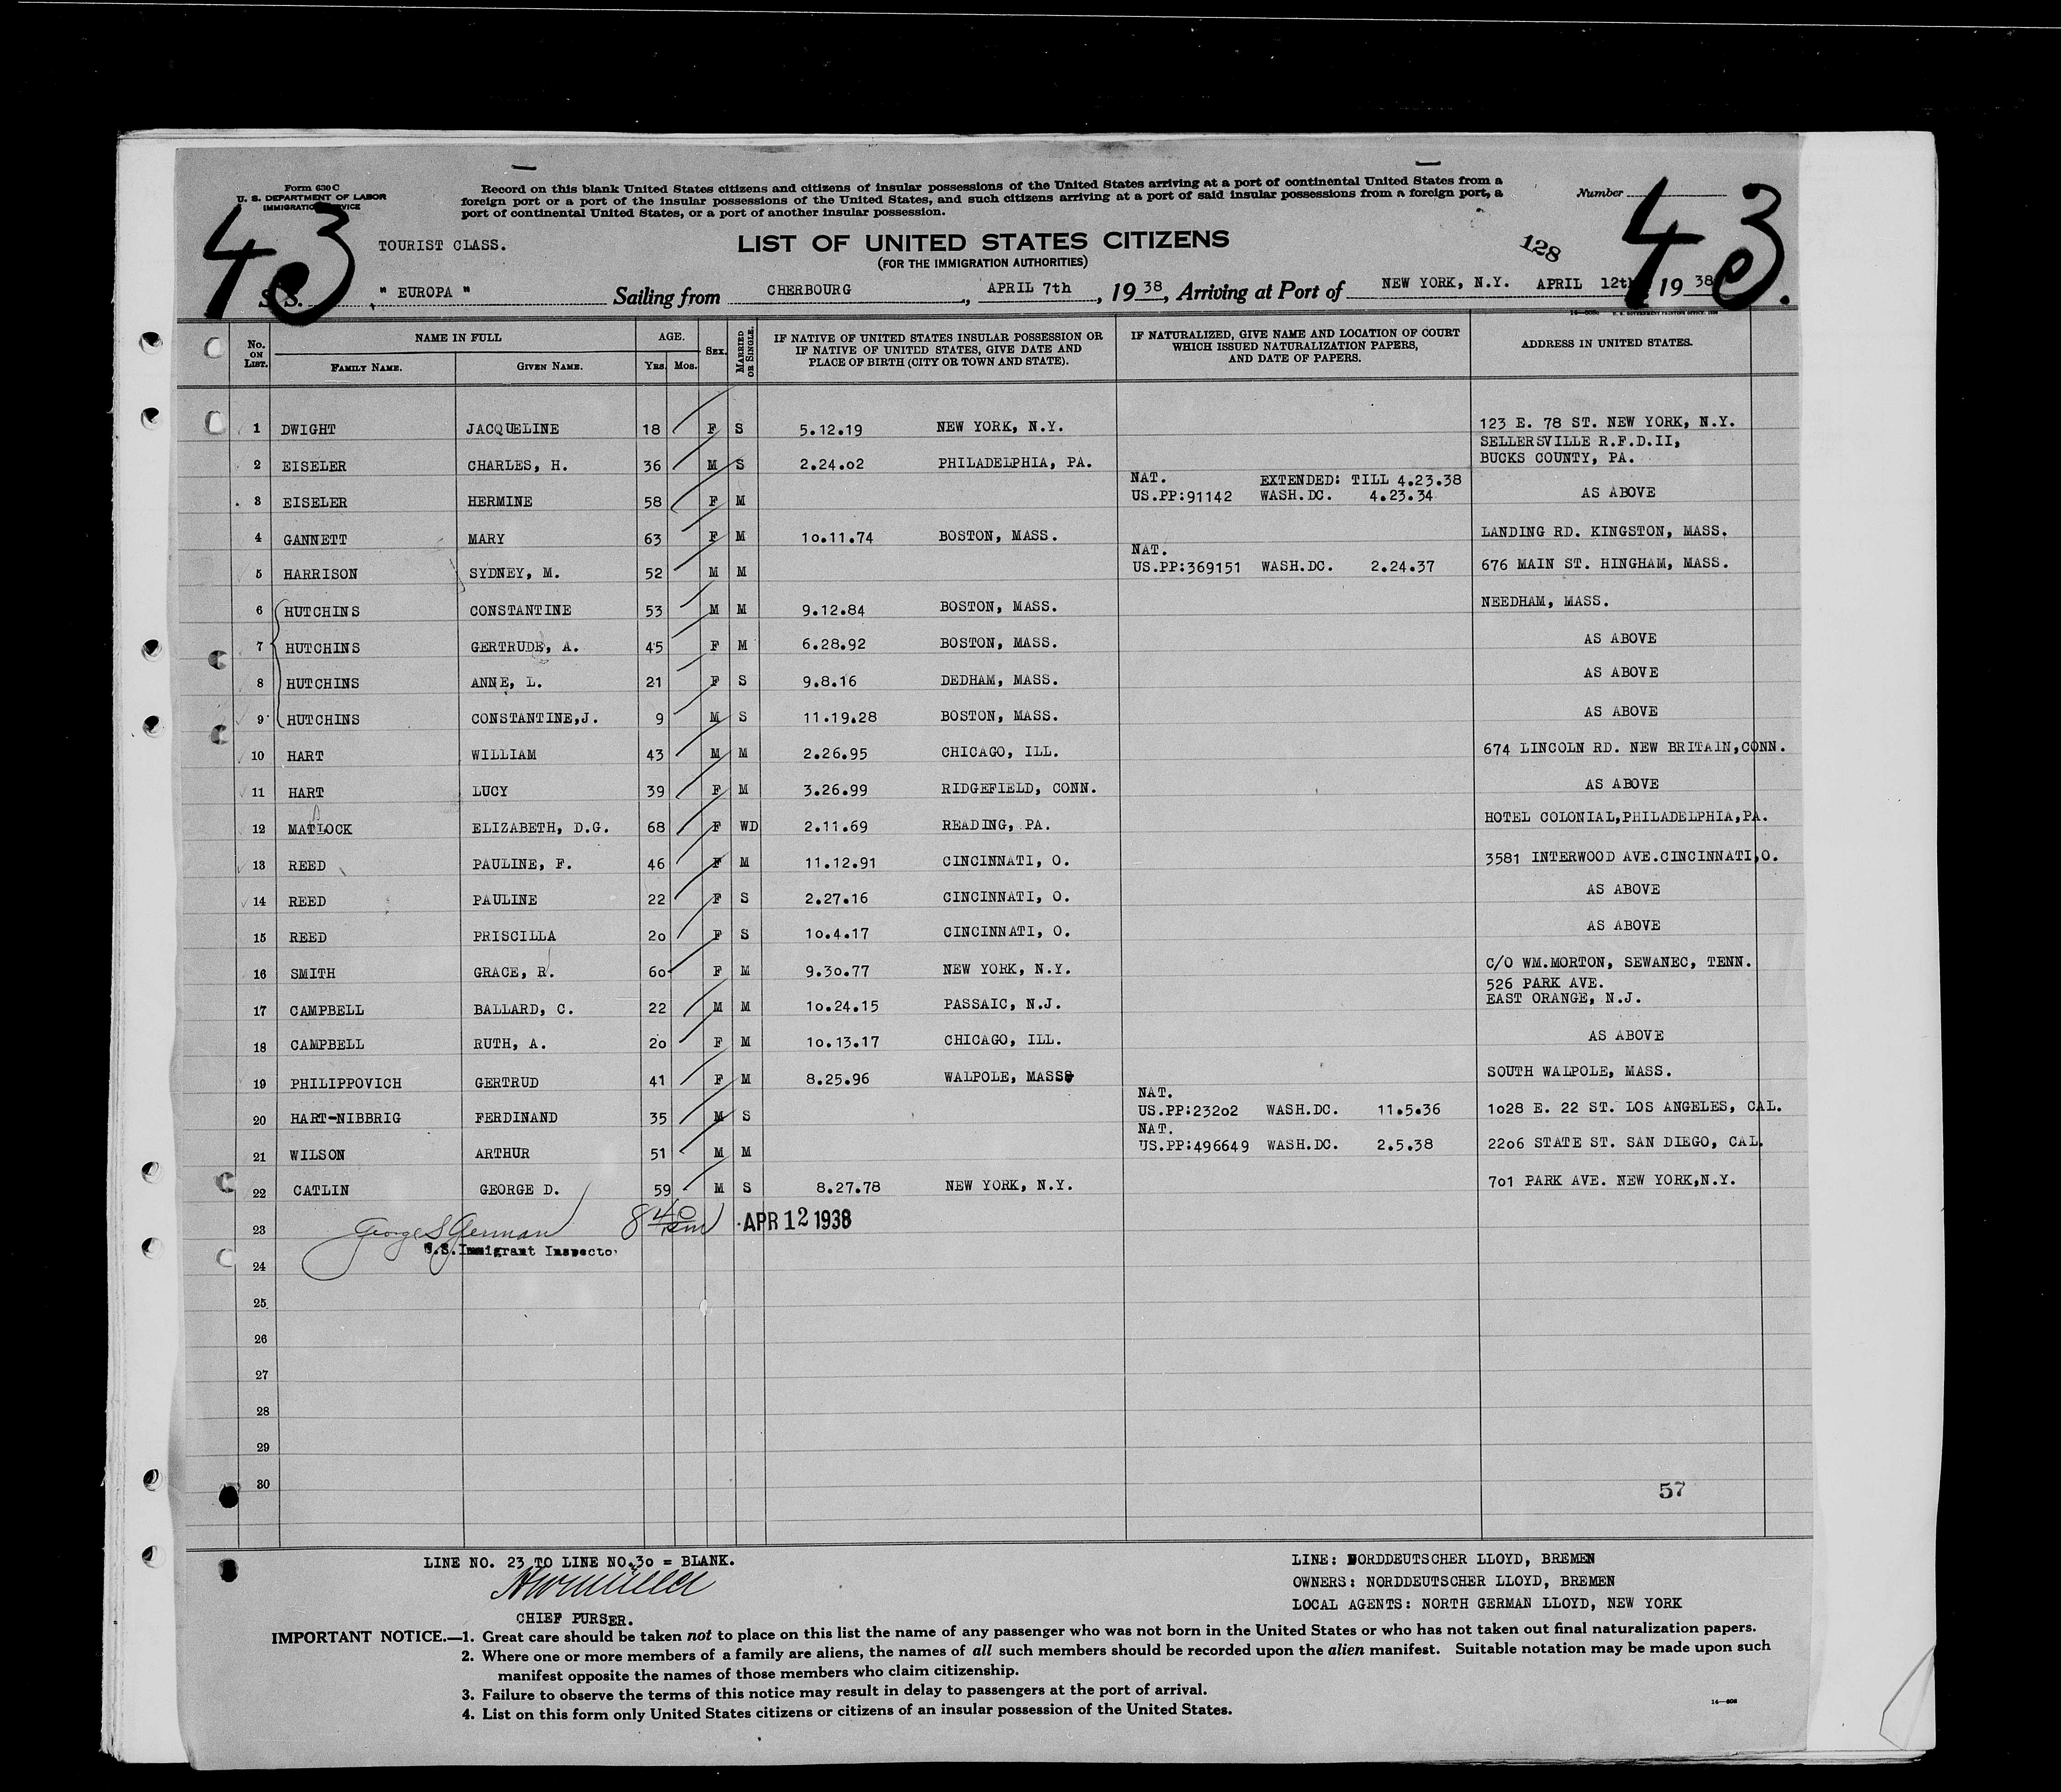 Form 630 C
U. S. DEPARTMENT OF LABOR
IMMIGRATION SERVICE
Record on this blank United States citizens and citizens of insular possessions of the United States arriving at a port of continental United States from a
foreign port or a port of the insular possessions of the United States, and such citizens arriving at a port of said insular possessions from a foreign port, a
port of continental United States, or a port of another insular possession.
Number
43
43.
TOURIST CLASS.
LIST OF UNITED STATES CITIZENS
(FOR THE IMMIGRATION AUTHORITIES)
128
S. S. " EUROPA " Sailing from CHERBOURG, APRIL 7th, 19 38, Arriving at Port of NEW YORK, N.Y. APRIL 12th 19 38
No. ON LIST. NAME IN FULL AGE. SEX. MARRIED OR SINGLE. IF NATIVE OF UNITED STATES INSULAR POSSESSION OR IF NATIVE OF UNITED STATES, GIVE DATE AND PLACE OF BIRTH (CITY OR TOWN AND STATE). IF NATURALIZED, GIVE NAME AND LOCATION OF COURT WHICH ISSUED NATURALIZATION PAPERS, AND DATE OF PAPERS. ADDRESS IN UNITED STATES.
FAMILY NAME. GIVEN NAME. YRS. MOS.
1 DWIGHT JACQUELINE 18 F S 5.12.19 NEW YORK, N.Y. 123 E. 78 ST. NEW YORK, N.Y.
SELLERSVILLE R.F.D.II,
2 EISELER CHARLES, H. 36 M S 2.24.02 PHILADELPHIA, PA. BUCKS COUNTY, PA.
NAT. EXTENDED: TILL 4.23.38
3 EISELER HERMINE 58 F M US.PP:91142 WASH.DC. 4.23.34 AS ABOVE
4 GANNETT MARY 63 F M 10.11.74 BOSTON, MASS. LANDING RD. KINGSTON, MASS.
NAT.
5 HARRISON SYDNEY, M. 52 M M US.PP:369151 WASH.DC. 2.24.37 676 MAIN ST. HINGHAM, MASS.
6 HUTCHINS CONSTANTINE 53 M M 9.12.84 BOSTON, MASS. NEEDHAM, MASS.
7 HUTCHINS GERTRUDE, A. 45 F M 6.28.92 BOSTON, MASS. AS ABOVE
8 HUTCHINS ANNE, L. 21 F S 9.8.16 DEDHAM, MASS. AS ABOVE
9 HUTCHINS CONSTANTINE,J. 9 M S 11.19.28 BOSTON, MASS. AS ABOVE
10 HART WILLIAM 43 M M 2.26.95 CHICAGO, ILL. 674 LINCOLN RD. NEW BRITAIN,CONN.
11 HART LUCY 39 F M 3.26.99 RIDGEFIELD, CONN. AS ABOVE
12 MATLOCK ELIZABETH, D.G. 68 F WD 2.11.69 READING, PA. HOTEL COLONIAL,PHILADELPHIA,PA.
13 REED PAULINE, F. 46 F M 11.12.91 CINCINNATI, O. 3581 INTERWOOD AVE.CINCINNATI,O.
14 REED PAULINE 22 F S 2.27.16 CINCINNATI, O. AS ABOVE
15 REED PRISCILLA 20 F S 10.4.17 CINCINNATI, O. AS ABOVE
16 SMITH GRACE, R. 60 F M 9.30.77 NEW YORK, N.Y. C/O WM.MORTON, SEWANEC, TENN.
526 PARK AVE.
17 CAMPBELL BALLARD, C. 22 M M 10.24.15 PASSAIC, N.J. EAST ORANGE, N.J.
18 CAMPBELL RUTH, A. 20 F M 10.13.17 CHICAGO, ILL. AS ABOVE
19 PHILIPPOVICH GERTRUD 41 F M 8.25.96 WALPOLE, MASS. SOUTH WALPOLE, MASS.
NAT.
20 HART-NIBBRIG FERDINAND 35 M S US.PP:23202 WASH.DC. 11.5.36 1028 E. 22 ST. LOS ANGELES, CAL.
NAT.
21 WILSON ARTHUR 51 M M US.PP:496649 WASH.DC. 2.5.38 2206 STATE ST. SAN DIEGO, CAL.
22 CATLIN GEORGE D. 59 M S 8.27.78 NEW YORK, N.Y. 701 PARK AVE. NEW YORK,N.Y.
23 George S German 8 40 am APR 12 1938
U.S.Immigrant Inspector
24
25
26
27
28
29
30
57
LINE NO. 23 TO LINE NO.30 = BLANK.
CHIEF PURSER.
LINE: NORDDEUTSCHER LLOYD, BREMEN
OWNERS: NORDDEUTSCHER LLOYD, BREMEN
LOCAL AGENTS: NORTH GERMAN LLOYD, NEW YORK
IMPORTANT NOTICE.—1. Great care should be taken not to place on this list the name of any passenger who was not born in the United States or who has not taken out final naturalization papers.
2. Where one or more members of a family are aliens, the names of all such members should be recorded upon the alien manifest. Suitable notation may be made upon such
manifest opposite the names of those members who claim citizenship.
3. Failure to observe the terms of this notice may result in delay to passengers at the port of arrival.
4. List on this form only United States citizens or citizens of an insular possession of the United States.
14—608